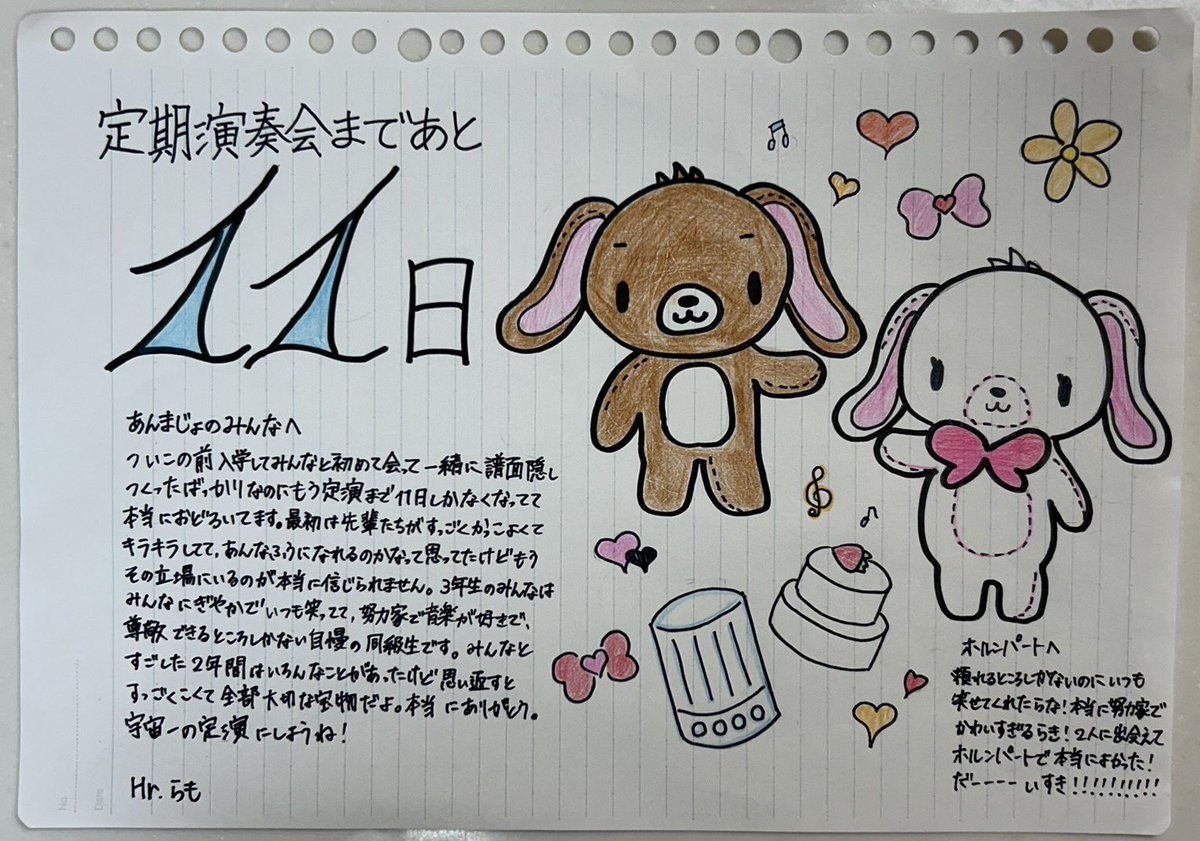 定期演奏会まであと
11日
あんまじょのみんなへ
ついこの前入学してみんなと初めて会って一緒に譜面隠し
つくったばっかりなのにもう定演まで11日しかなくなってて
本当におどろいてます。最初は先輩たちがすっごくかっこよくて
キラキラしてて、あんなふうになれるのかなって思ってたけどもう
その立場にいるのが本当に信じられません。3年生のみんなは
みんなにぎやかでいつも笑ってて、努力家で音楽が好きで、
尊敬できるところしかない自慢の同級生です。みんなと
すごした2年間はいろんなことがあったけど思い返すと
すっごくこくて全部大切な宝物だよ。本当にありがとう。
宇宙一の定演にしようね!
Hr. らも
ホルンパートへ
頼れるところしかないのにいつも
笑せてくれたらな!本当に努力家で
かわいすぎるらき!2人に出会えて
ホルンパートで本当によかった!
だーーーーいすき!!!!!!!!!!
No.
Date